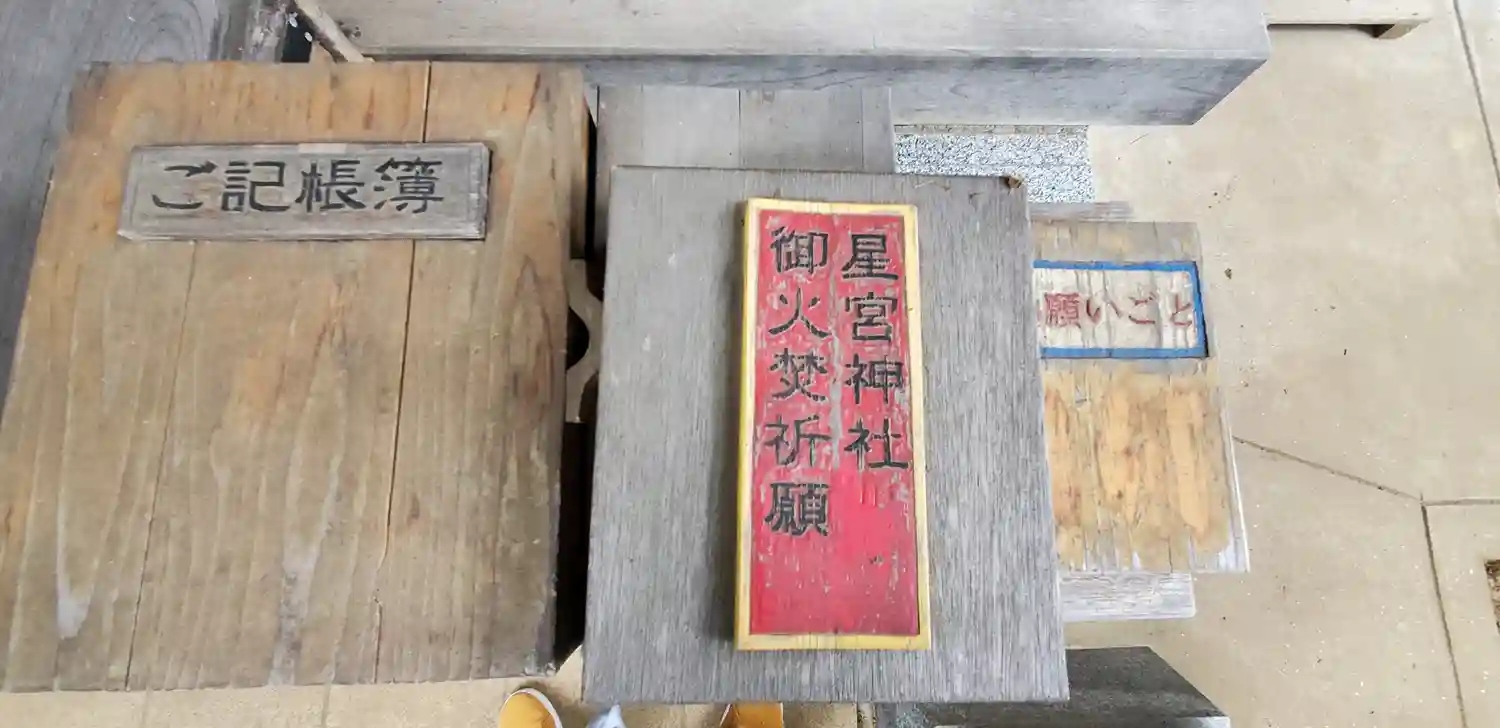 ご記帳簿
星宮神社
御火焚祈願
願いごと